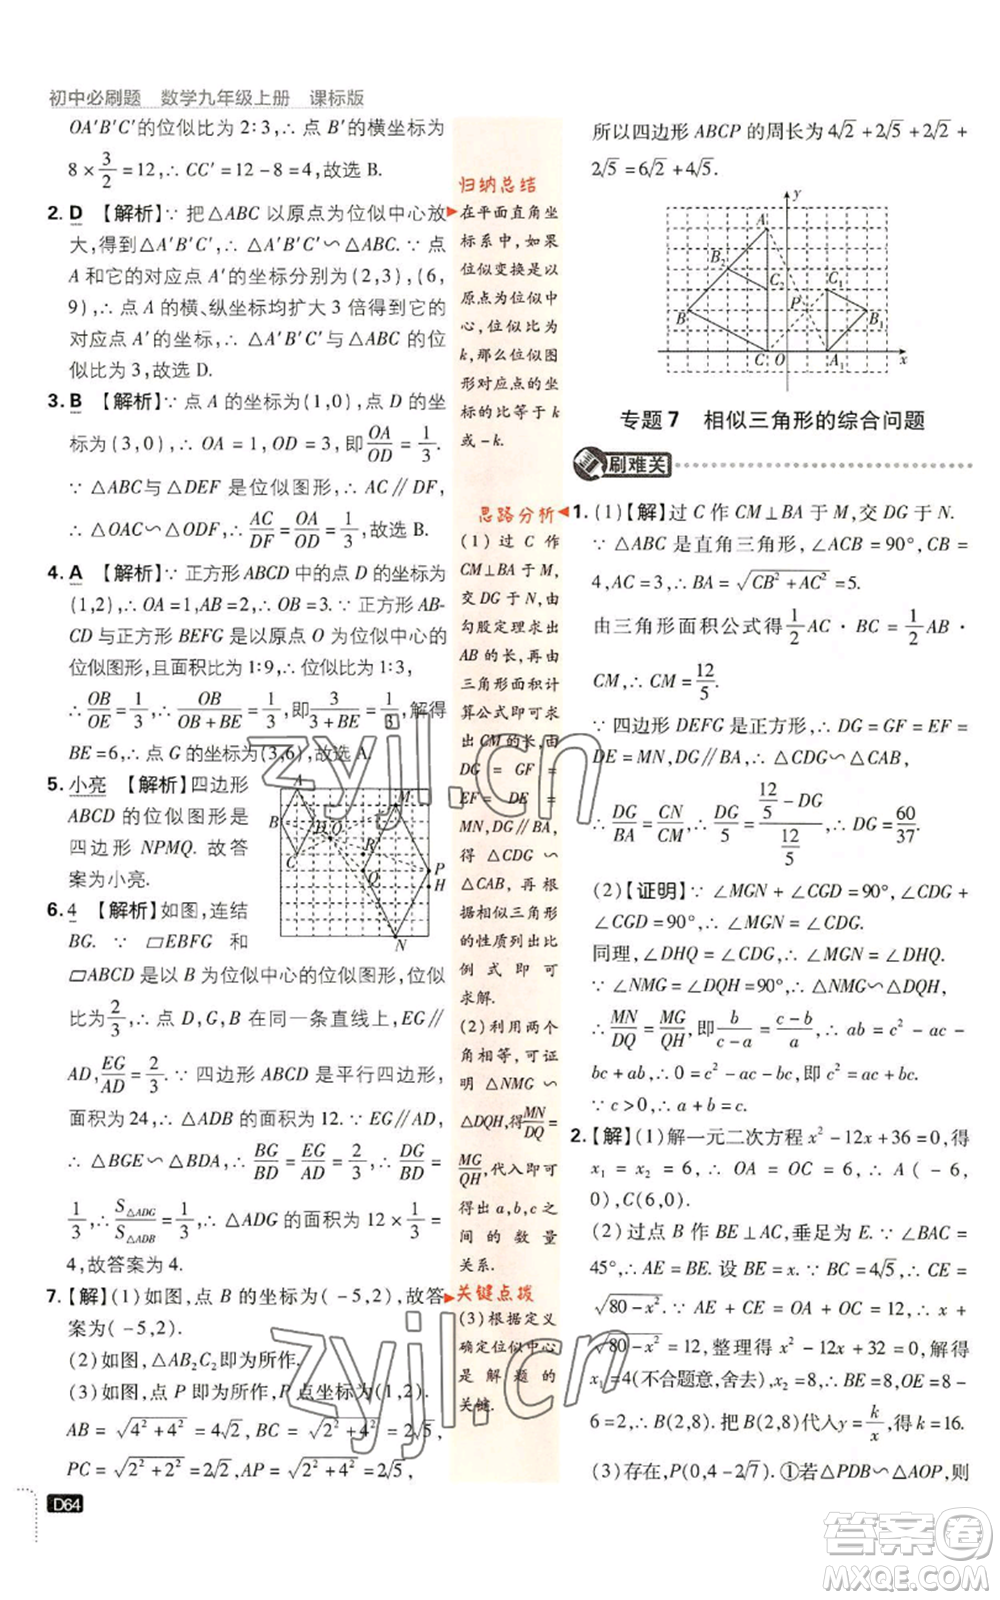 初中必刷题 数学九年级上册 课标版
OA′B′C′的位似比为 2∶3,∴ 点 B′的横坐标为
8 × 3/2 = 12,∴ CC′ = 12 - 8 = 4,故选 B.
2. D 【解析】∵ 把△ABC 以原点为位似中心放
大,得到△A′B′C′,∴ △A′B′C′∽△ABC. ∵ 点
A 和它的对应点 A′的坐标分别为(2,3),(6,
9),∴ 点 A 的横、纵坐标均扩大 3 倍得到它的
对应点 A′的坐标,∴ △A′B′C′与△ABC 的位
似比为 3,故选 D.
3. B 【解析】∵ 点 A 的坐标为(1,0),点 D 的坐
标为(3,0),∴ OA = 1,OD = 3,即 OA/OD = 1/3.
∵ △ABC与△DEF 是位似图形,∴ AC∥DF,
∴ △OAC∽△ODF,∴ AC/DF = OA/OD = 1/3,故选 B.
4. A 【解析】∵ 正方形 ABCD 中的点 D 的坐标为
(1,2),∴ OA=1,AB=2,∴ OB=3. ∵ 正方形 AB-
CD 与正方形 BEFG 是以原点 O 为位似中心的
位似图形,且面积比为 1∶9,∴ 位似比为 1∶3,
∴ OB/OE = 1/3,∴ OB/(OB + BE) = 1/3,即 3/(3 + BE) = 1/3,解得
BE=6,∴ 点 G 的坐标为(3,6),故选 A.
5. 小亮 【解析】四边形
ABCD 的位似图形是
四边形 NPMQ. 故答
案为小亮.
A M B D O C R P Q H N
6. 4 【解析】如图,连结
BG. ∵ ▱EBFG 和
▱ABCD 是以 B 为位似中心的位似图形,位似
比为 2/3,∴ 点 D,G,B 在同一条直线上,EG∥
AD, EG/AD = 2/3. ∵ 四边形 ABCD 是平行四边形,
面积为 24,∴ △ADB 的面积为 12. ∵ EG∥AD,
∴ △BGE∽△BDA,∴ BG/BD = EG/AD = 2/3,∴ DG/BD =
1/3,∴ S△ADG/S△ADB = 1/3,∴ △ADG 的面积为 12 × 1/3 =
4,故答案为 4.
7.【解】(1)如图,点 B 的坐标为( -5,2),故答
案为( -5,2).
(2)如图,△AB₂C₂即为所作.
(3)如图,点 P 即为所作,P 点坐标为(1,2).
AB = √(4² + 4²) = 4√2,BC = √(2² + 4²) = 2√5,
PC = √(2² + 2²) = 2√2,AP = √(2² + 4²) = 2√5,
D64
归纳总结
在平面直角坐
标系中,如果
位似变换是以
原点为位似中
心,位似比为
k,那么位似图
形对应点的坐
标的比等于 k
或 -k.
思路分析
(1) 过 C 作
CM⊥BA 于 M,
交 DG 于 N,由
勾股定理求出
AB 的长,再由
三角形面积计
算公式即可求
出 CM 的长,由
DG = GF =
EF = DE =
MN,DG∥BA,
得 △CDG ∽
△CAB,再根
据相似三角形
的性质列出比
例式即可
求解.
(2)利用两个
角相等,可证
明 △NMG ∽
△DQH,得 MN/DQ =
MG/QH,代入即可
得出 a,b,c之
间的数量
关系.
关键点拨
(3)根据定义
确定位似中心
是解题的
关键.
所以四边形 ABCP 的周长为 4√2 + 2√5 + 2√2 +
2√5 = 6√2 + 4√5.
y A B₂ C₂ C₁ P B B₁ C O A₁ x
专题 7 相似三角形的综合问题
刷难关
1. (1)【解】过 C 作 CM⊥BA 于 M,交 DG 于 N.
∵ △ABC 是直角三角形,∠ACB = 90°,CB =
4,AC = 3,∴ BA = √(CB² + AC²) = 5.
由三角形面积公式得 1/2 AC · BC = 1/2 AB ·
CM,∴ CM = 12/5.
∵ 四边形 DEFG 是正方形,∴ DG = GF = EF =
DE = MN,DG∥BA,∴ △CDG∽△CAB,
∴ DG/BA = CN/CM,∴ DG/5 = (12/5 - DG)/(12/5),∴ DG = 60/37.
(2)【证明】∵ ∠MGN + ∠CGD = 90°,∠CDG +
∠CGD = 90°,∴ ∠MGN = ∠CDG.
同理,∠DHQ = ∠CDG,∴ ∠MGN = ∠DHQ.
∵ ∠NMG = ∠DQH = 90°,∴ △MGN∽△DQH,
∴ MN/DQ = MG/QH,即 b/(c - a) = (c - b)/a,∴ ab = c² - ac -
bc + ab,∴ 0 = c² - ac - bc,即 c² = ac + bc.
∵ c > 0,∴ a + b = c.
2.【解】(1)解一元二次方程 x² - 12x + 36 = 0,得
x₁ = x₂ = 6,∴ OA = OC = 6,∴ A ( - 6,
0),C(6,0).
(2) 过点 B 作 BE⊥AC,垂足为 E. ∵ ∠BAC =
45°,∴ AE = BE. 设 BE = x. ∵ BC = 4√5,∴ CE =
√(80 - x²). ∵ AE + CE = AC = OA + OC,∴ x +
√(80 - x²) = 12,整理得 x² - 12x + 32 = 0,解得
x₁=4(不合题意,舍去),x₂=8,∴ BE = 8,OE = 8 -
6 = 2,∴ B(2,8). 把 B(2,8)代入y = k/x,得 k = 16.
(3) 易求 P(0,4 - 2√7). ①若△PDB∽△AOP,则
zyjl.cn
zyjl.cn
答案圈
MXQE.COM